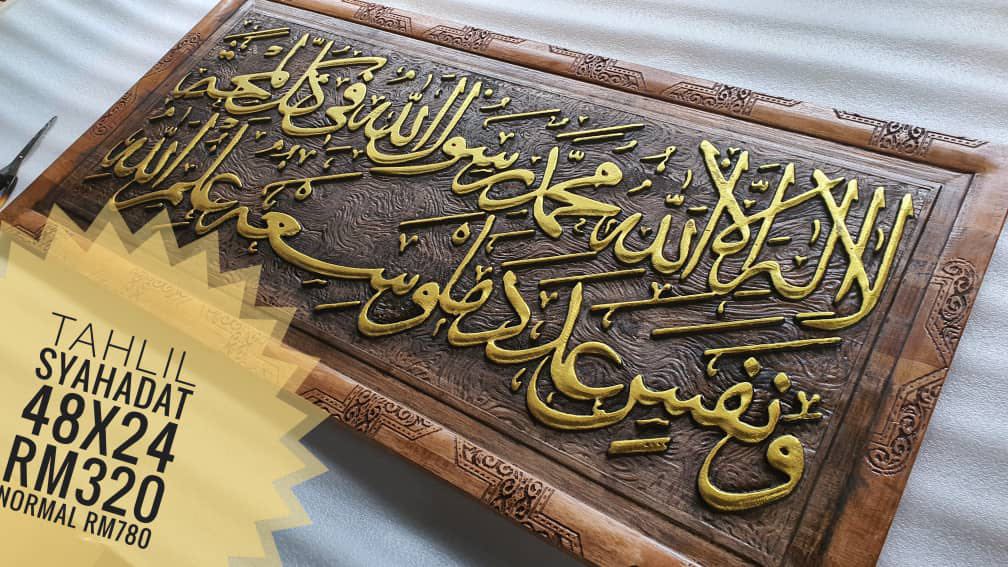 لا إله إلا الله محمد رسول الله في كل لمحة
ونفس عدد ما وسعه علم الله
TAHLIL
SYAHADAT
48X24
RM320
NORMAL RM780